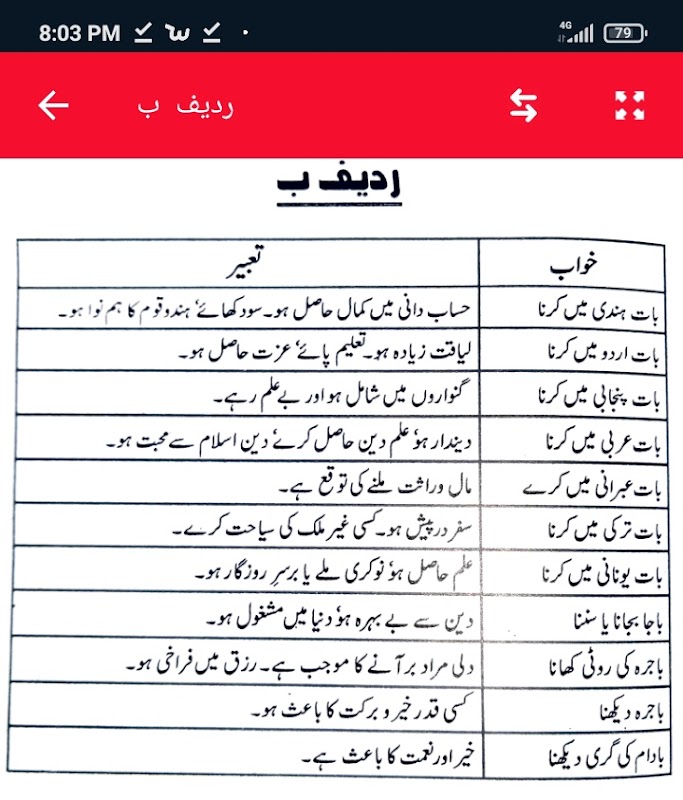 8:03 PM
4G
79
ردیف ب
ردیف ب
خواب تعبیر
بات ہندی میں کرنا حساب دانی میں کمال حاصل ہو۔ سود کھائے‘ ہندو قوم کا ہم نوا ہو۔
بات اردو میں کرنا لیاقت زیادہ ہو۔ تعلیم پائے‘ عزت حاصل ہو۔
بات پنجابی میں کرنا گنواروں میں شامل ہو اور بے علم رہے۔
بات عربی میں کرنا دیندار ہو‘ علم دین حاصل کرے‘ دین اسلام سے محبت ہو۔
بات عبرانی میں کرے مال وراثت ملنے کی توقع ہے۔
بات ترکی میں کرنا سفر درپیش ہو۔ کسی غیر ملک کی سیاحت کرے۔
بات یونانی میں کرنا علم حاصل ہو‘ نوکری ملے یا برسرِ روزگار ہو۔
باجا بجانا یا سننا دین سے بے بہرہ ہو‘ دنیا میں مشغول ہو۔
باجرہ کی روٹی کھانا دلی مراد بر آنے کا موجب ہے۔ رزق میں فراخی ہو۔
باجرہ دیکھنا کسی قدر خیر و برکت کا باعث ہو۔
بادام کی گری دیکھنا خیر اور نعمت کا باعث ہے۔